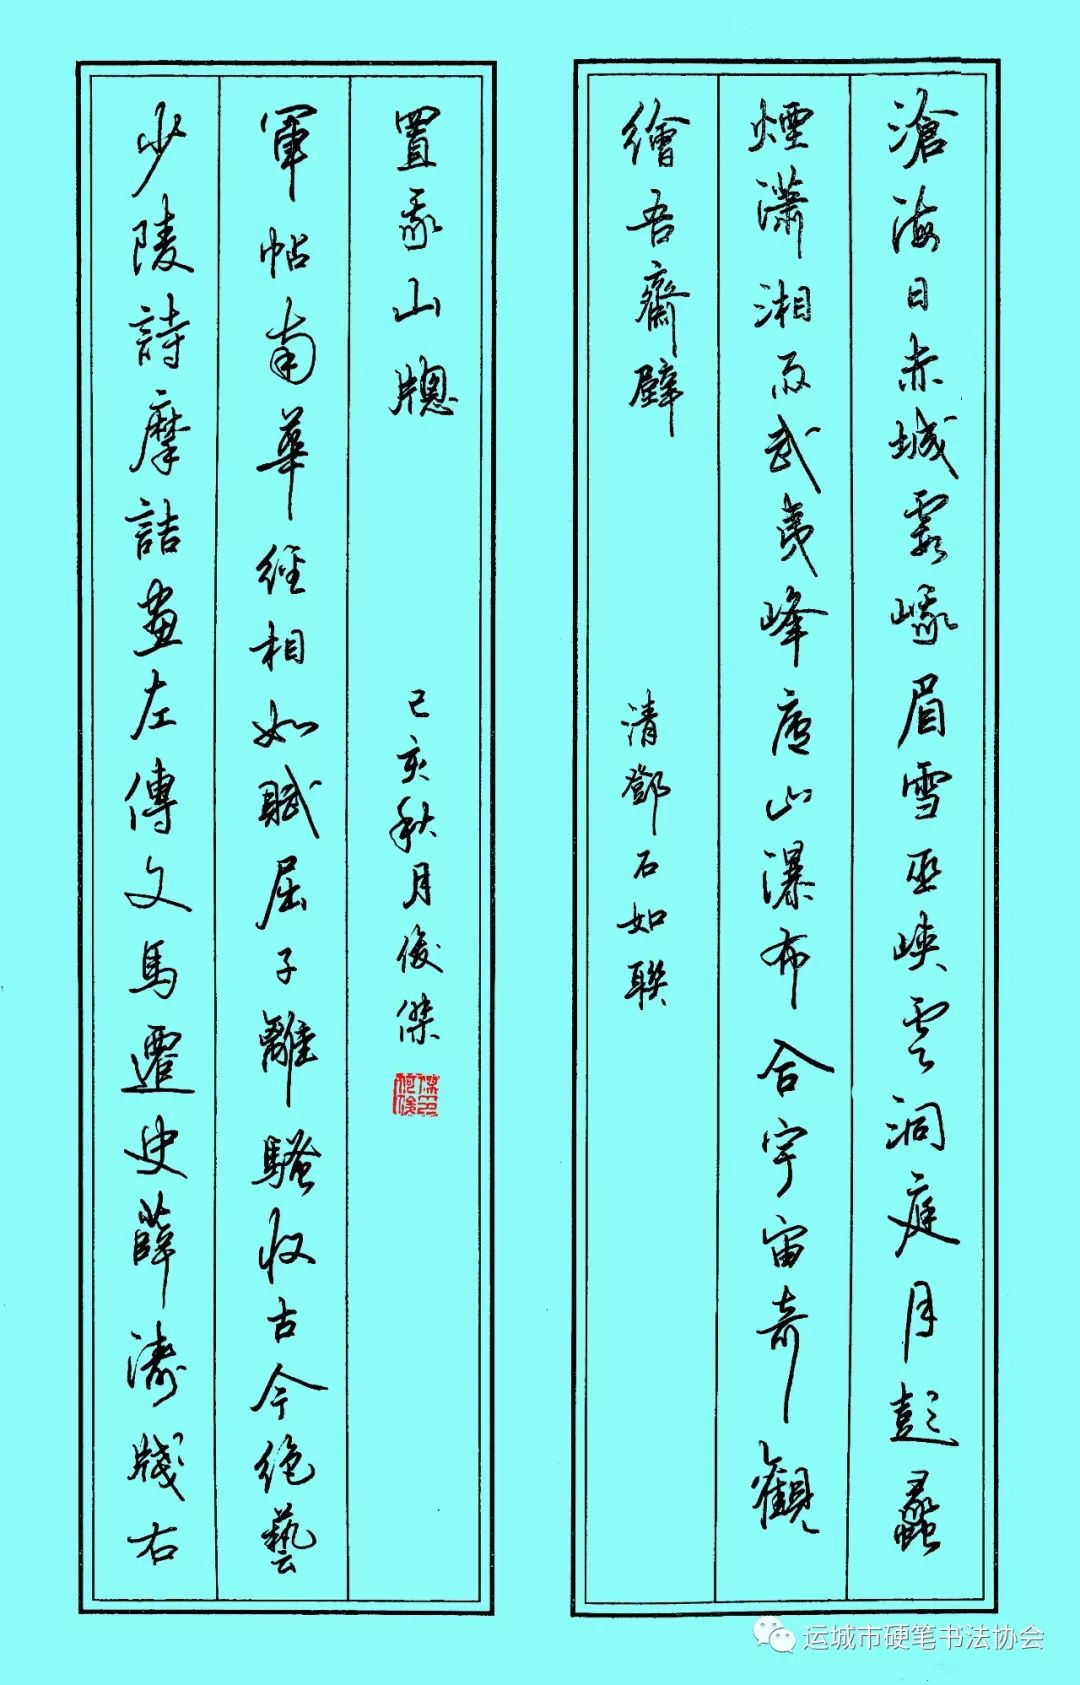 滄海日赤城霞峨眉雪巫峽雲洞庭月彭蠡
煙瀟湘雨武夷峰廬山瀑布合宇宙奇觀
繪吾齋壁
清鄧石如聯
少陵詩摩詰畫左傳文馬遷史薛濤牋右
軍帖南華經相如賦屈子離騷收古今絕藝
置我山牕
己亥秋月俊傑
运城市硬笔书法协会